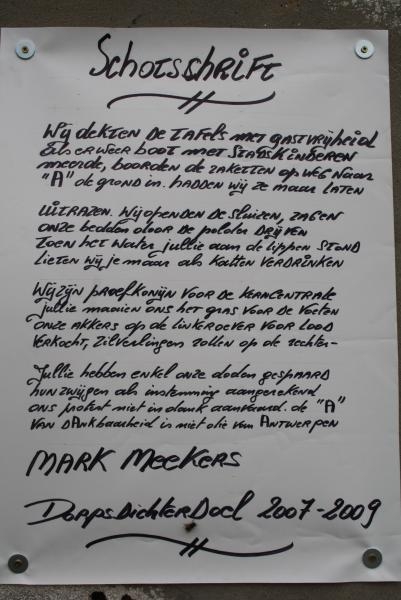 Schotschrift
Wij dekten de tafels met gastvrijheid
als er weer boot met stadskinderen
meerde, boorden de raketten op weg naar
"A" de grond in. Hadden wij ze maar laten
uitrazen. Wij openden de sluizen, zagen
onze bedden door de polder drijven
toen het water jullie aan de lippen stond
lieten wij je maar als katten verdrinken
Wij zijn proefkonijn voor de kerncentrale
jullie maaien ons het gras voor de voeten
onze akkers op de linkeroever voor lood
verkocht, zilverlingen rollen op de rechter-
Jullie hebben enkel onze doden gespaard
hun zwijgen als instemming aangerekend
ons protest niet in dank aanvaard. de "A"
van dAnkbaarheid is niet die van Antwerpen
Mark Meekers
DorpsDichter Doel 2007-2009